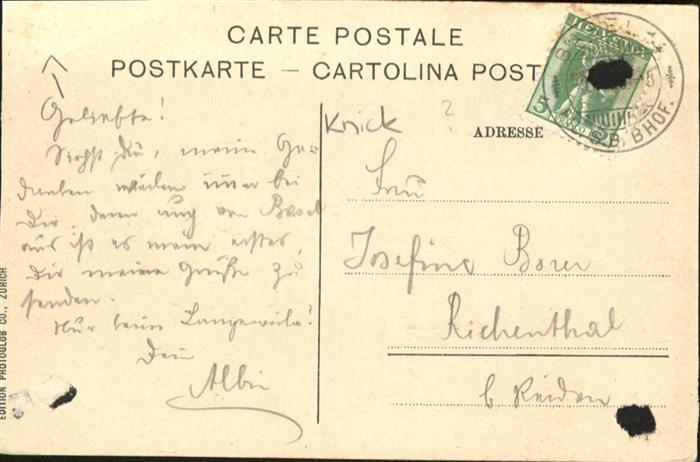 CARTE POSTALE
POSTKARTE — CARTOLINA POST
Geliebte!
Siehst du, meine Ge-
danken weilen immer bei
Dir, denn auch von Basel
aus ist es mein erstes,
Dir meine Grüße zu
senden.
Nur keine Langeweile!
Dein
Albin
Knick ?
ADRESSE
Frau
Josefine Borer
Richenthal
b Reiden
5
B.BHOF.
EDITION PHOTOGLOB CO., ZÜRICH